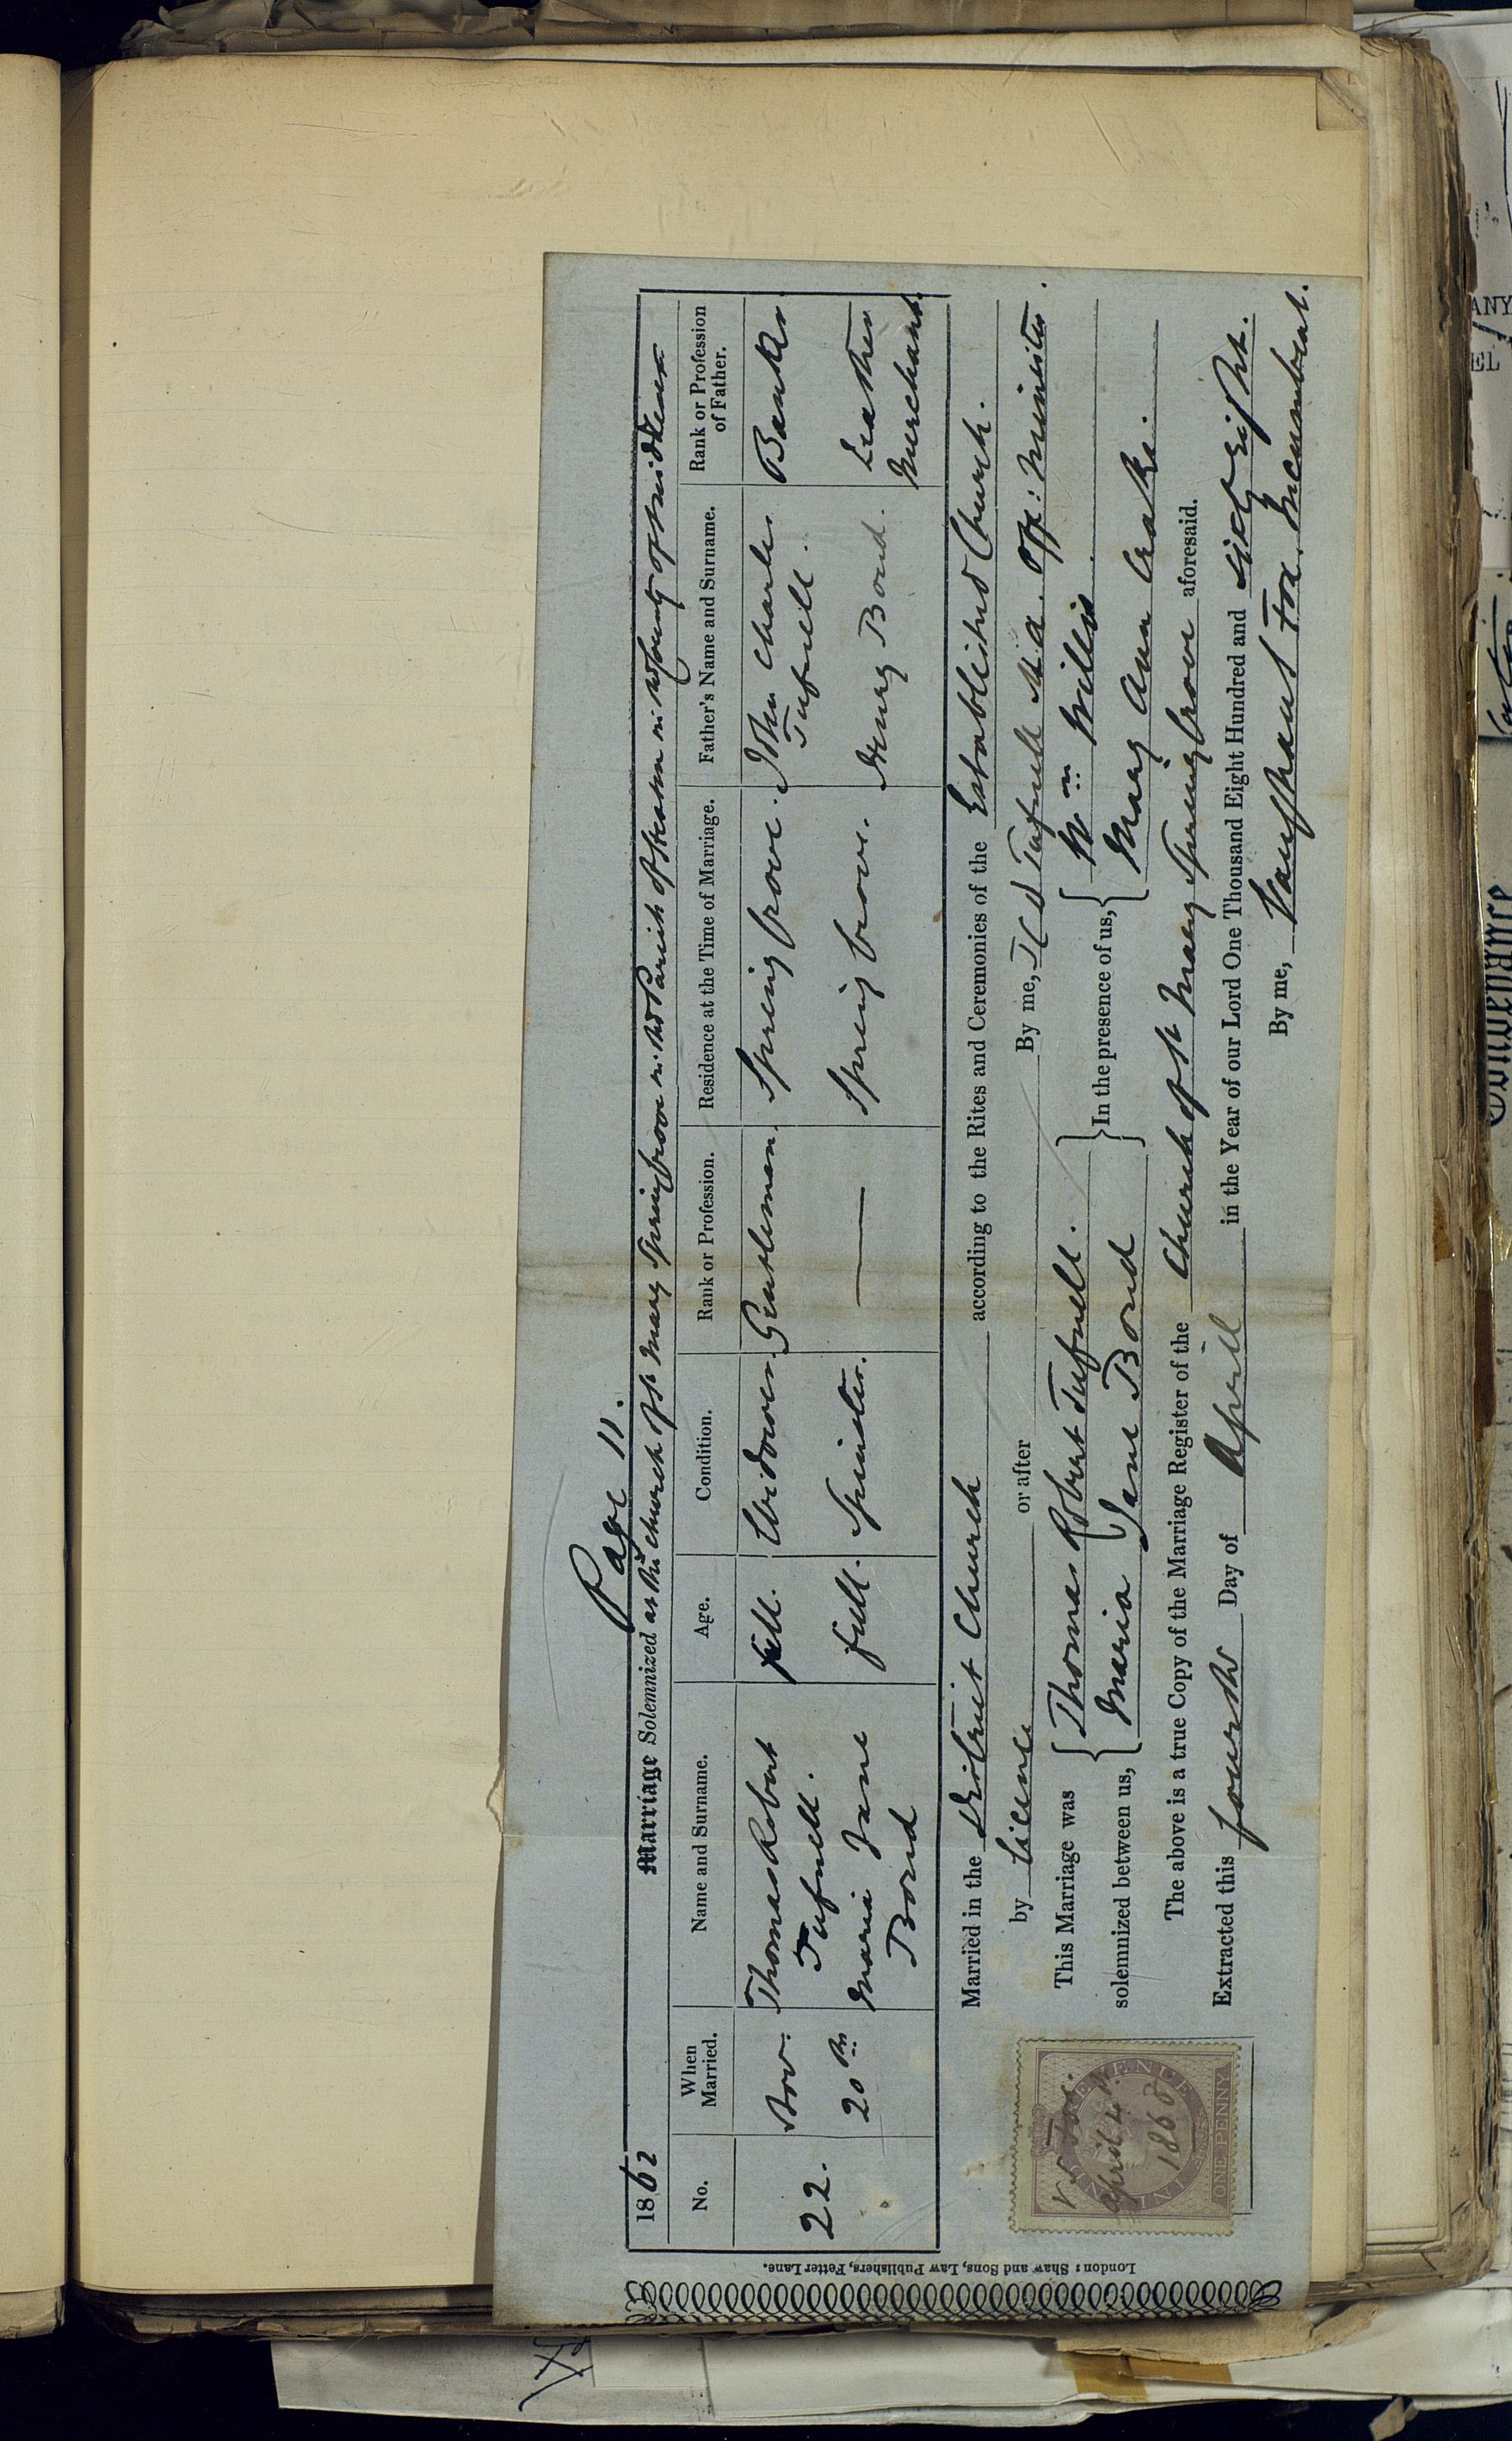 Page 11.
1862 Marriage Solemnized at the Church of St Mary Spring Grove in the Parish of Heston in the County of Middlesex
No. When Married. Name and Surname. Age. Condition. Rank or Profession. Residence at the Time of Marriage. Father's Name and Surname. Rank or Profession of Father.
22. Nov: 20th Thomas Robert Tufnell. full. Widower. Gentleman. Spring Grove. John Charles Tufnell. Banker.
Maria Jane Bond full. Spinster. — Spring Grove. Henry Bond. Leather Merchant.
Married in the District Church according to the Rites and Ceremonies of the Established Church.
by Licence or after By me, Tufnell M.A. Off: Minister.
This Marriage was solemnized between us, { Thomas Robert Tufnell. Maria Jane Bond } In the presence of us, { Wm Willis Mary Ann Leake.
The above is a true Copy of the Marriage Register of the Church of St Mary Spring Grove aforesaid.
Extracted this fourth Day of April in the Year of our Lord One Thousand Eight Hundred and Sixty eight.
By me, Fox. Incumbent.
INLAND REVENUE
ONE PENNY
V Fox.
April 4
1868
London: Shaw and Sons, Law Publishers, Fetter Lane.
ANY
EL
Conveyance